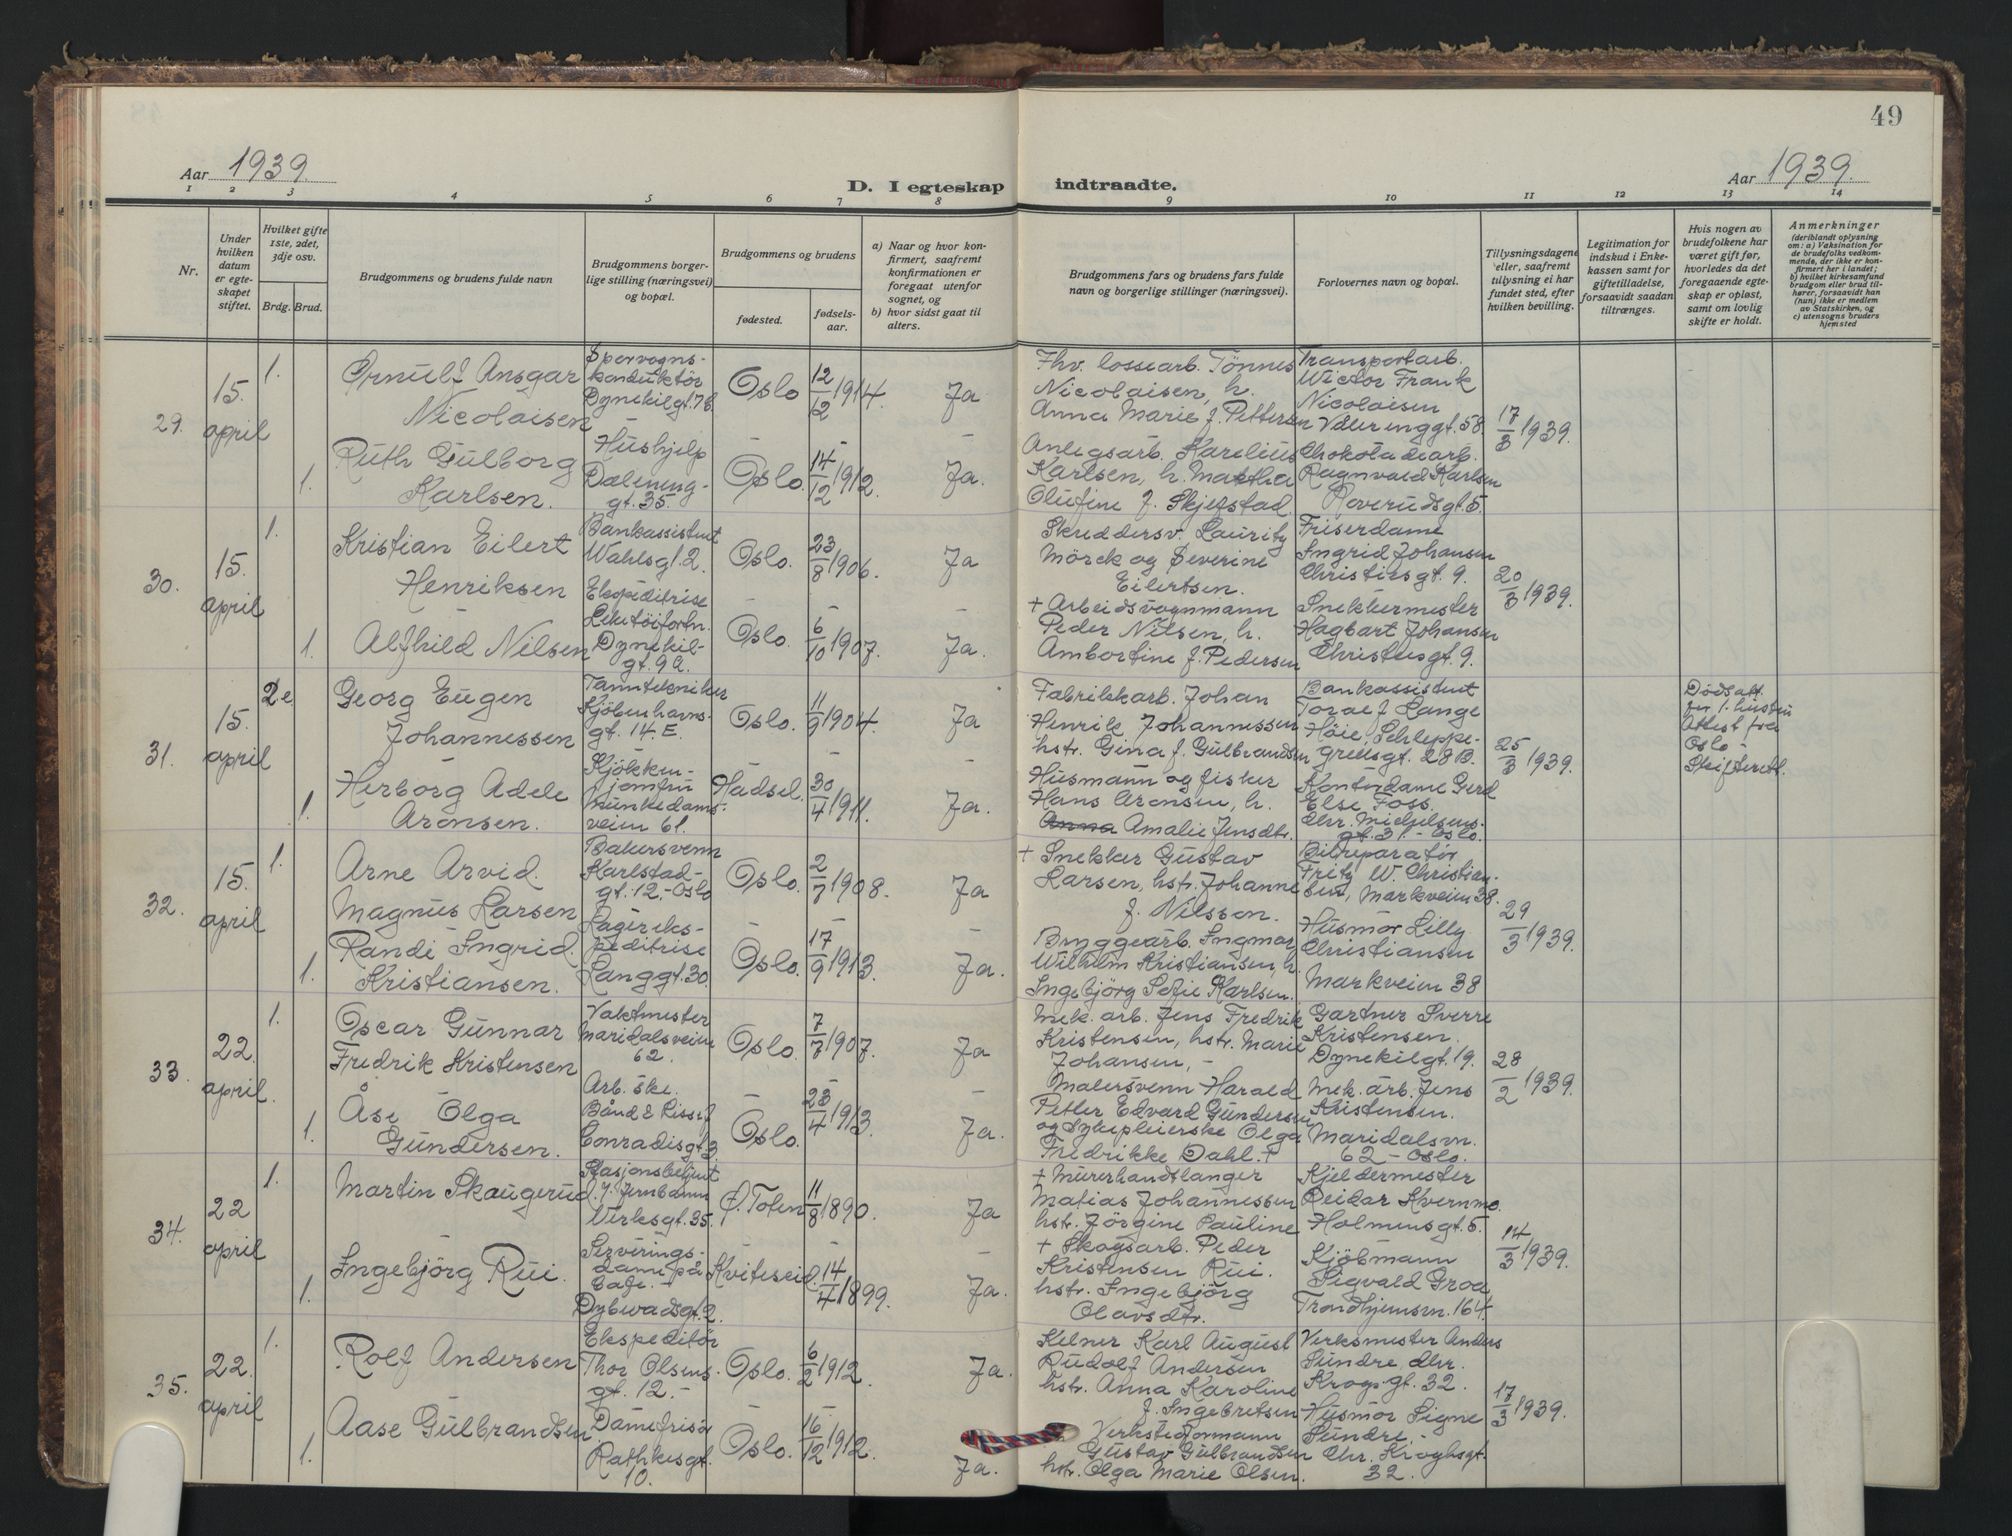 49
Aar 1939
D. I egteskap indtraadte.
Aar 1939.
1 2 3 4 5 6 7 8 9 10 11 12 13 14
Nr.
Under hvilken datum er egteskapet stiftet.
Hvilket gifte 1ste, 2det, 3dje osv.
Brdg. Brud.
Brudgommens og brudens fulde navn
Brudgommens borgerlige stilling (næringsvei) og bopæl.
Brudgommens og brudens
fødested.
fødselsaar.
a) Naar og hvor konfirmert, saafremt konfirmationen er foregaat utenfor sognet, og
b) hvor sidst gaat til alters.
Brudgommens fars og brudens fars fulde navn og borgerlige stillinger (næringsvei).
Forlovernes navn og bopæl.
Tillysningsdagene eller, saafremt tillysning ei har fundet sted, efter hvilken bevilling.
Legitimation for indskud i Enkekassen samt for giftetilladelse, forsaavidt saadan tiltrænges.
Hvis nogen av brudefolkene har været gift før, hvorledes da det foregaaende egteskap er opløst, samt om lovlig skifte er holdt.
Anmerkninger
(deriblandt oplysning om: a) Vaksination for de brudefolks vedkommende, der ikke er konfirmert her i landet; b) hvilket kirkesamfund brudgom eller brud tilhører, forsaavidt han (hun) ikke er medlem av Statskirken, og c) utensogns bruders hjemsted
29. 15. april
1. Ørnulf Ansgar
Nicolaisen
Sporvogns-
konduktör
Dynekilgt. 7 b.
Oslo 12/12 1914. Ja
Fhv. lossearb. Tønnes
Nicolaisen, h.
Anna Marie f. Pettersen
Transportarb.
Wictor Frank
Nicolaisen
Vålerenggt. 58.
17/3 1939.
1. Ruth Gulborg
Karlsen.
Hushjelp
Dæleneng-
gt. 35.
Oslo. 14/12 1912. Ja.
Anlegsarb. Karelius
Karlsen, h. Martha
Olufine f. Skjefstad
Chokoladearb.
Ragnvald Karlsen
Roverudsgt. 5.
30. 15. april
1. Kristian Eilert
Henriksen
Bankassistent
Wahlsgt. 2.
Oslo. 23/8 1906. Ja
Skreddersv. Lauritz
Mörck og Severine
Eilertsen.
Friserdame
Ingrid Johansen
Christiesgt. 9.
20/3 1939.
1. Alfhild Nilsen
Ekspeditrise
Leketöifortn.
Dynekil-
gt. 9 a.
Oslo. 6/10 1907. Ja.
+ Arbeidsvognmann
Peder Nilsen, h.
Ambortine f. Pedersen
Snekkermester
Hagbart Johansen
Christiesgt. 9.
31. 15. april
2e Georg Eugen
Johannessen
Tanntekniker
Kjöbenhavns-
gt. 14. E.
Oslo. 11/9 1904. Ja
Fabrikkarb. Johan
Henrik Johannessen
hstr. Gina f. Gulbrandsen
Bankassistent
Toralf Lange
Höie, Schleppe-
grellsgt. 28 B.
25/3 1939.
Dödsatt.
for 1. hustru
Attest fra
Oslo -
Skifterett.
1. Herborg Adele
Aronsen.
Kjökken-
jomfru
Munkedams-
veien 61.
Hadsel. 30/4 1911. Ja.
Husmann og fisker
Hans Aronsen, h.
Anna Amalie Jensdtr.
Kontordame Gerd
Else Foss.
Chr. Michelsens-
gt. 31. - Oslo.
32. 15. april
1. Arne Arvid
Magnus Larsen
Bakersvenn
Karlstad-
gt. 12. - Oslo
Oslo. 2/7 1908. Ja
+ Snekker Gustav
Larsen, hstr. Johanne
f. Nilsson.
Bilreparatör
Fritz W. Christian-
sen, Markveien 38.
29/3 1939.
1. Randi Ingrid
Kristiansen.
Lagereks-
peditrise
Langgt. 30
Oslo. 17/9 1913. Ja.
Bryggearb. Ingmar
Wilhelm Kristiansen, h.
Ingebjörg Sofie Karlsen.
Husmor Lilly
Christiansen
Markveien 38
33. 22. april.
1. Oscar Gunnar
Fredrik Kristensen
Vaktmester
Maridalsveien
62.
Oslo. 7/7 1907. Ja
Mek. arb. Jens Fredrik
Kristensen, hstr. Marie
Johansen, -
Gartner Sverre
Kristensen.
Dynekilgt. 19.
28/2 1939.
1. Åse Olga
Gundersen.
Arb. ske.
Bånd & Lissef.
Conradisgt. 3
Oslo. 23/4 1913. Ja.
Malersvenn Harald
Petter Edvard Gundersen
og Sykepleierske Olga
Fredrikke Dahl. +
Mek. arb. Jens
Kristensen.
Maridalsvn.
62 - Oslo.
34. 22 april
1. Martin Skaugerud
Stasjonsbetjent
v. Jernbanen
Verksgt. 35.
Ø. Toten 11/8 1890. Ja
+ Murerhandtlanger
Matias Johannessen
hstr. Jörgine Pauline
Kjeldermester
Reidar Kvernmo.
Holmensgt. 5.
14/3 1939.
1. Ingebjörg Rui.
Serverings-
dame på
Cafe.
Dybwadsgt. 2.
Kviteseid. 14/4 1899. Ja.
+ Skogsarb. Peder
Kristensen Rui.
hstr. Ingebjörg
Olavsdtr.
Kjöbmann
Sigvald Groa
Trondhjemsvn. 164.
35. 22. april
1. Rolf Andersen
Ekspeditör
Thor Olsens
gt. 12. -
Oslo. 6/2 1912. Ja.
Kelner Karl August
Rudolf Andersen
hstr. Anna Karoline
f. Ingebretsen
Verksmester Anders
Sundre, Chr.
Krogs gt. 32.
17/3 1939.
1. Aase Gulbrandsen
Damefrisör
Rathkesgt.
10.
Oslo. 16/12 1912. Ja.
Verkstedformann
Gustav Gulbrandsen
hstr. Olga Marie Olsen.
Husmor Signe
Sundre.
Chr. Kroghsgt.
32.